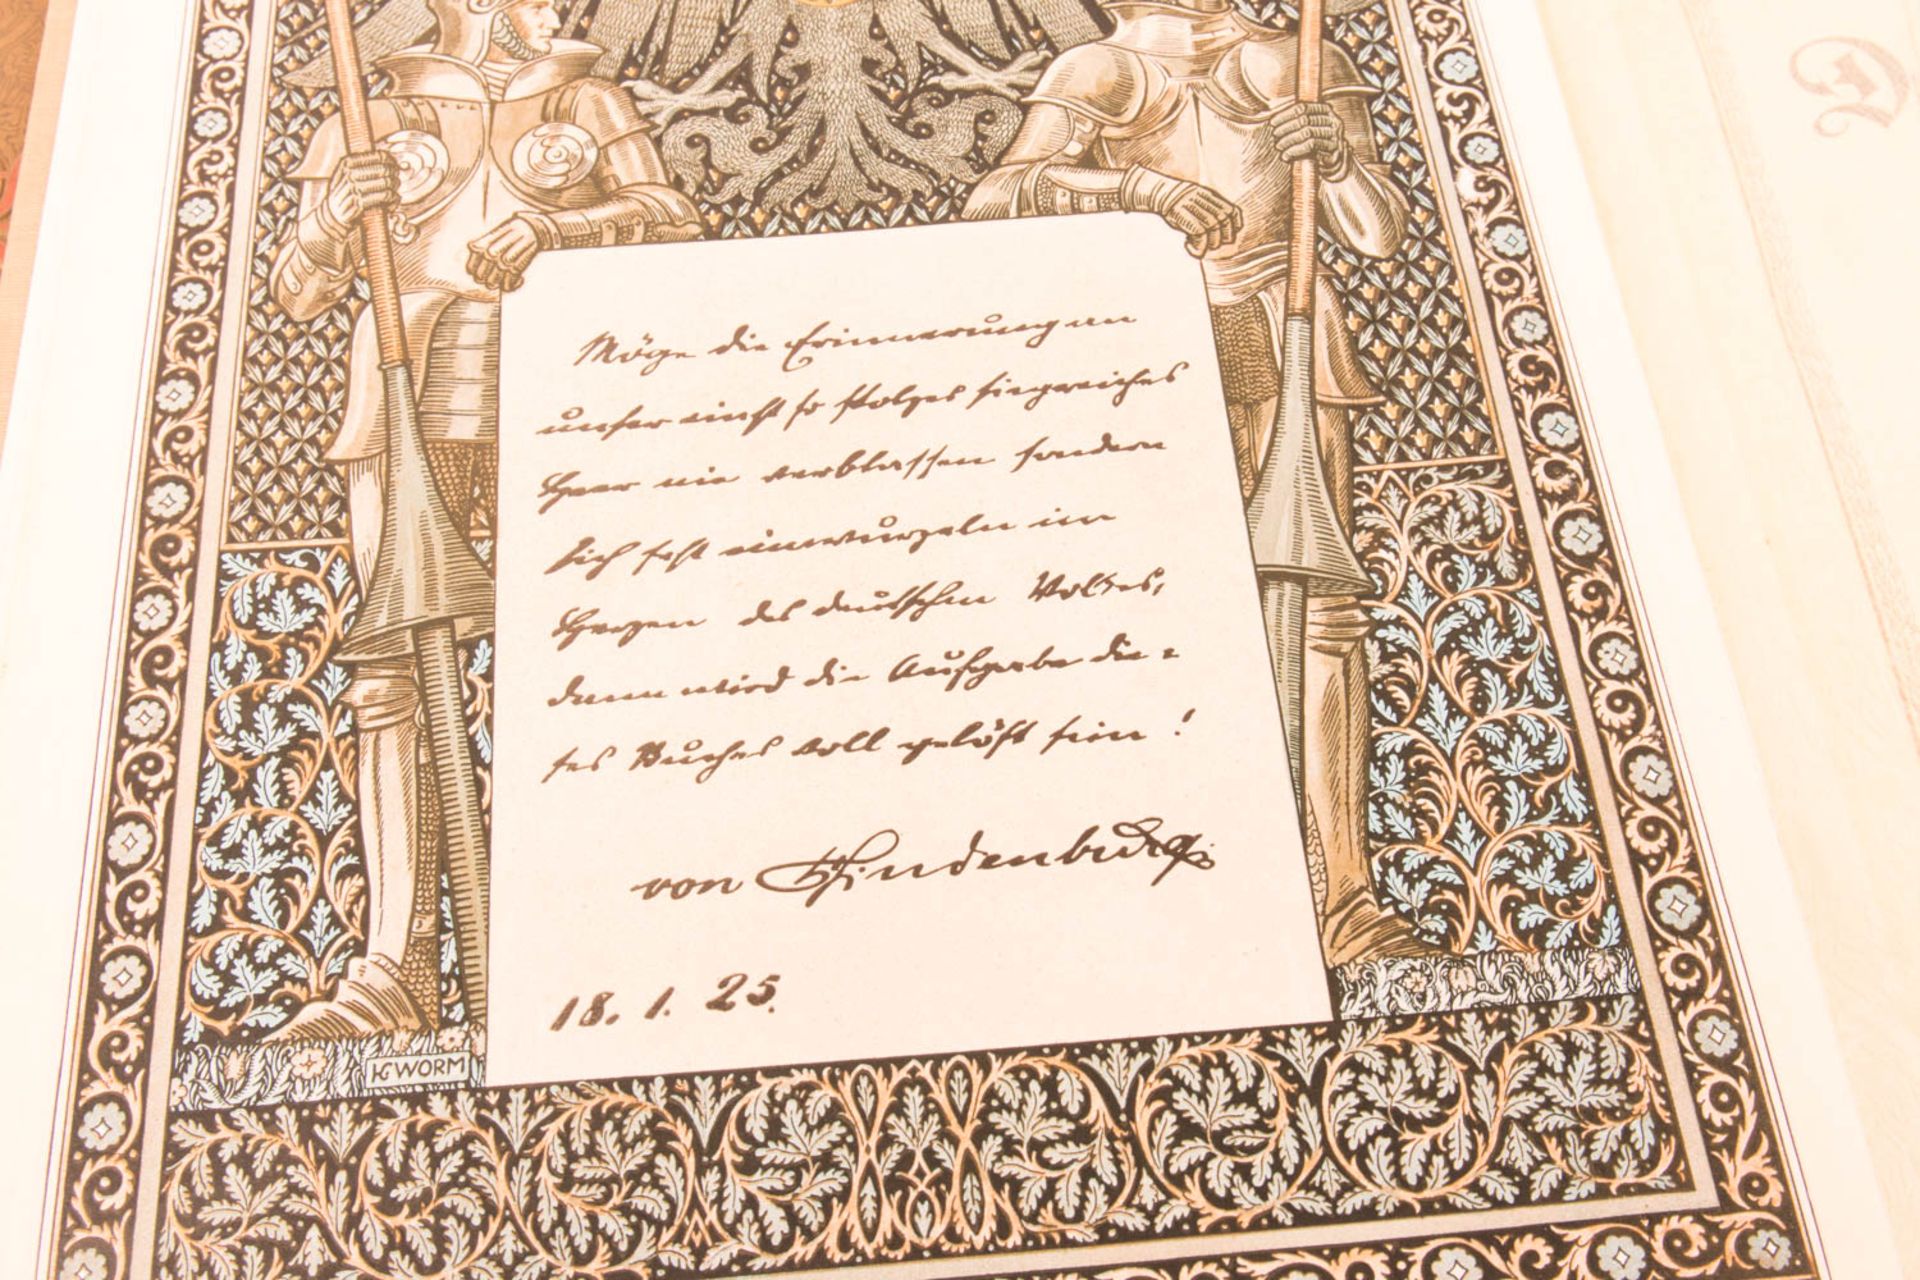 Möge die Erinnerung an
unser einst so stolzes siegreiches
Heer nie verblassen sondern
sich fest einwurzeln im
Herzen des deutschen Volkes,
dann wird die Aufgabe die=
ses Buches voll gelöst sein!
von Hindenburg.
18. 1. 25.
KG WORM